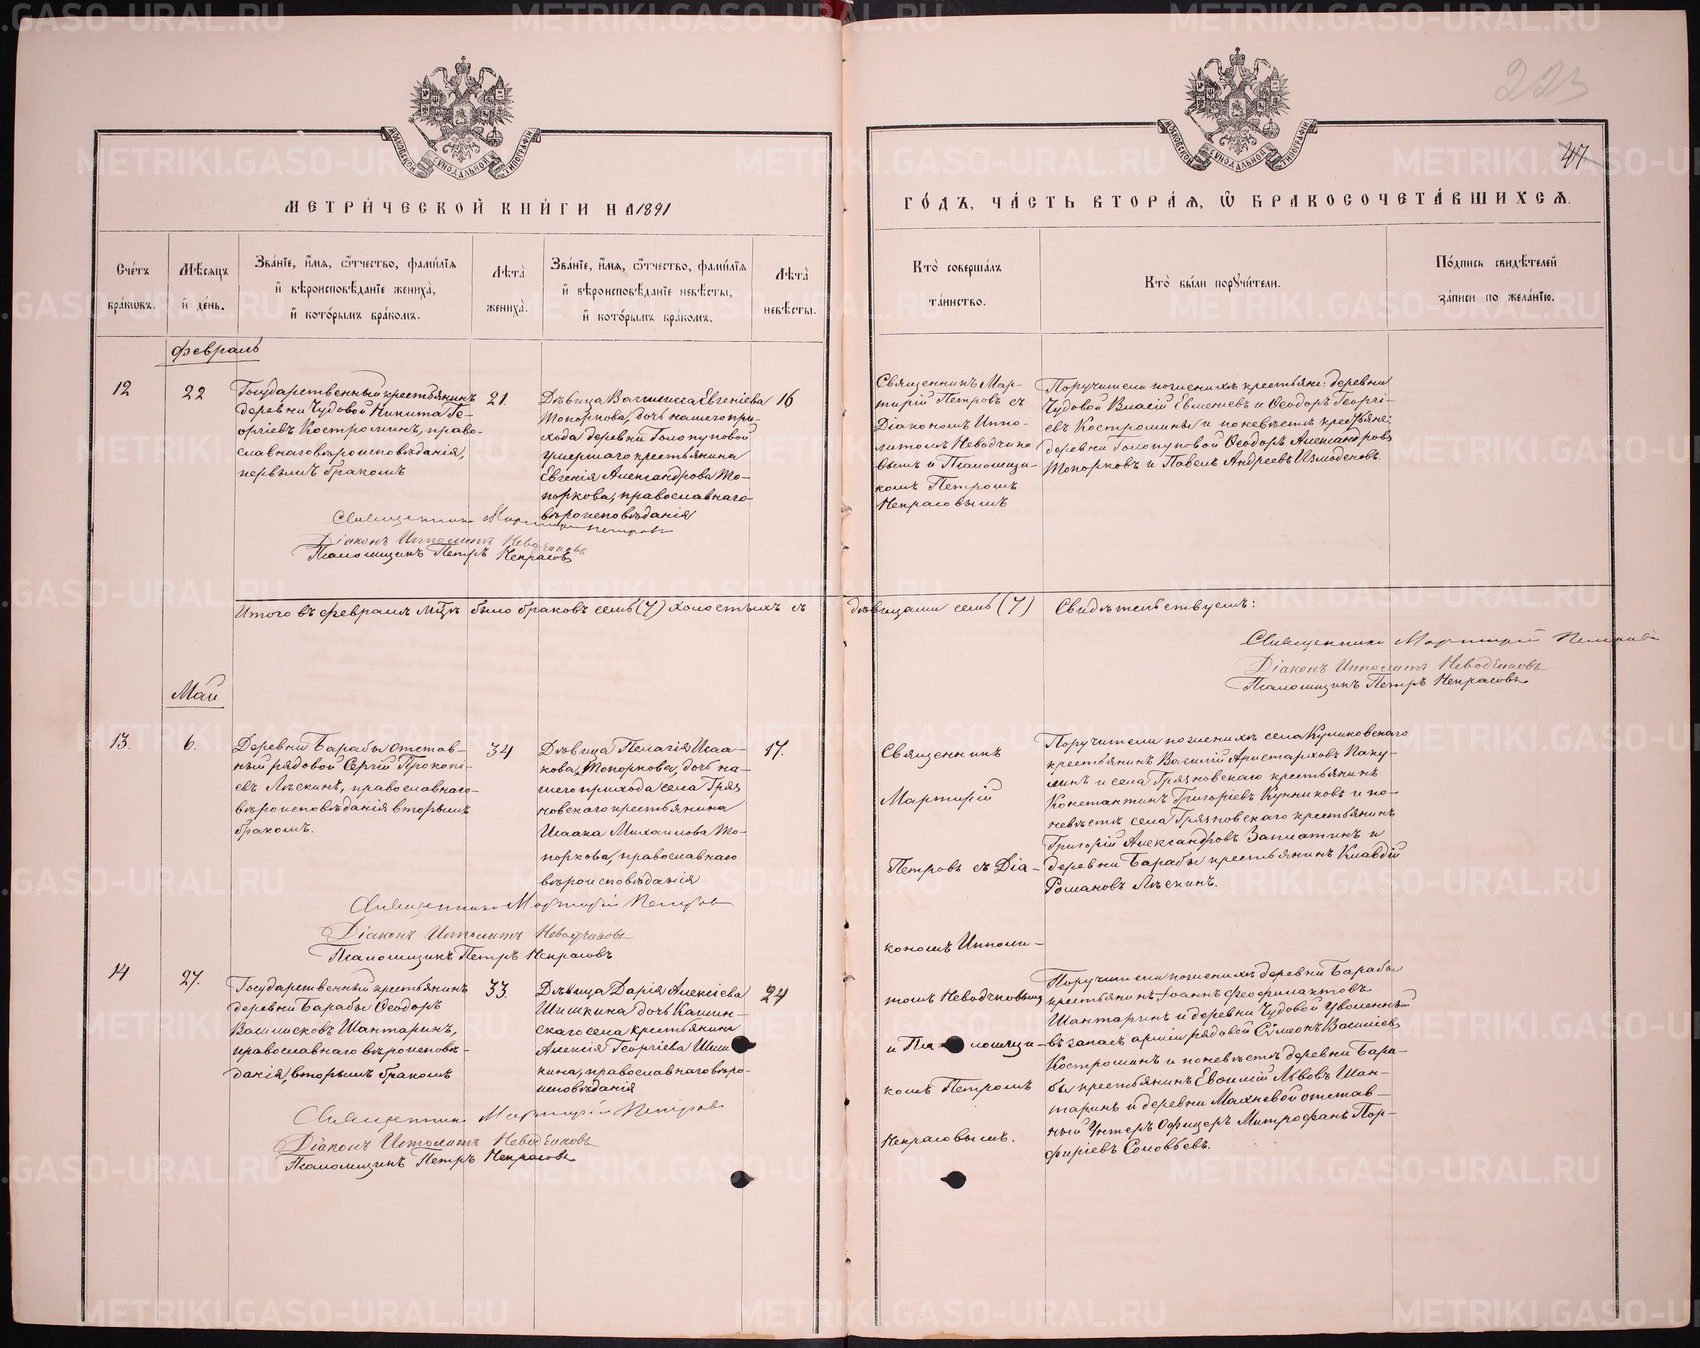 МЕТРИ́ЧЕСКОЙ КНИ́ГИ НА 1891
ГО́ДЪ, ЧА́СТЬ ВТОРА́Я, Ѿ БРАКОСОЧЕТА́ВШИХСѦ.
223
47
МОСКОВСКОЙ СѴНОДАЛЬНОЙ ТИПОГРАФІИ
МОСКОВСКОЙ СѴНОДАЛЬНОЙ ТИПОГРАФІИ
Сче́тъ бра́кѡвъ.
Мѣ́сяцъ и҆ де́нь.
Зва́нїе, и҆́мѧ, ѻ҆́тчество, фами́лїѧ и҆ вѣроисповѣ́данїе жениха̀, и҆ кото́рымъ бра́комъ.
Лѣ́та̀ жениха̀.
Зва́нїе, и҆́мѧ, ѻ҆́тчество, фами́лїѧ и҆ вѣроисповѣ́данїе невѣ́сты, и҆ кото́рымъ бра́комъ.
Лѣ́та̀ невѣ́сты.
Кто̀ соверша́лъ та́инство.
Кто̀ бы́ли порꙋчи́тели.
По́дпись свидѣ́телей за́писи по жела́нїю.
Февраль
12
22
Государственный крестьянинъ
деревни Чудовой Никита Ге-
оргіевъ Костроминъ, право-
славнаго вѣроисповѣданія,
первымъ бракомъ
21.
Дѣвица Василисса Евгеніева
Топоркова, дочь нашего при-
хода деревни Голопуповой
умершаго крестьянина
Евгенія Александрова То-
поркова, православнаго
вѣроисповѣданія
16
Священникъ Мар-
тирій Петровъ съ
Діакономъ Иппо-
литомъ Неводчико-
вымъ и Псаломщи-
комъ Петромъ
Некрасовымъ
Поручители по женихѣ крестьяне: деревни
Чудовой Власій Евменіевъ и Ѳеодоръ Георгі-
евъ Костромины и по невѣстѣ крестьяне:
деревни Голопуповой Ѳеодоръ Александровъ
Топорковъ и Павелъ Андреевъ Измоденовъ.
Священникъ Мартирій Петровъ
Діаконъ Ипполитъ Неводчиковъ
Псаломщикъ Петръ Некрасовъ
Итого въ февралѣ м-цѣ было браковъ семь (7) холостыхъ съ дѣвицами семь (7) Свидѣтельствуемъ:
Священникъ Мартирій Петровъ
Діаконъ Ипполитъ Неводчиковъ
Псаломщикъ Петръ Некрасовъ
Май
13.
6.
Деревни Барабы отстав-
ный рядовой Сергій Прокопі-
евъ Лѣскинъ, православнаго
вѣроисповѣданія вторымъ
бракомъ.
34
Дѣвица Пелагія Исаа-
кова Топоркова, дочь на-
шего прихода села Гряз
новскаго крестьянина
Исаака Михаилова То-
поркова, православнаго
вѣроисповѣданія
17.
Священникъ
Мартирій
Петровъ съ Діа-
кономъ Иппoли-
томъ Неводчиковымъ
и Псаломщи-
комъ Петромъ
Некрасовымъ.
Поручители по женихѣ села Куликовскаго
крестьянинъ Василій Аристарховъ Паку-
линъ и села Грязновскаго крестьянинъ
Константинъ Григоріевъ Кунниковъ и по
невѣстѣ села Грязновскаго крестьянинъ
Григорій Александровъ Заплатинъ и
деревни Барабы крестьянинъ Клавдій
Романовъ Лѣскинъ.
Священникъ Мартирій Петровъ
Діаконъ Ипполитъ Неводчиковъ
Псаломщикъ Петръ Некрасовъ
14
27.
Государственный крестьянинъ
деревни Барабы Ѳеодоръ
Василисковъ Шантаринъ,
православнаго вѣроисповѣ-
данія, вторымъ бракомъ
33.
Дѣвица Дарія Алексіева
Шишкина дочь Кашин-
скаго села крестьянина
Алексія Георгіева Шиш
кина, православнаго вѣро-
исповѣданія
24
Поручители по женихѣ деревни Барабы
крестьянинъ Іоаннъ Феофилактовъ
Шантаринъ и деревни Чудовой уволенный
въ запасъ арміи рядовой Сѵмеонъ Василіевъ
Костроминъ и по невѣстѣ деревни Бара-
бы крестьянинъ Евѳимій Львовъ Шан-
таринъ и деревни Махневой отстав-
ный Унтеръ Офицеръ Митрофанъ Пор-
фиріевъ Соловьевъ.
Священникъ Мартирій Петровъ
Діаконъ Ипполитъ Неводчиковъ
Псаломщикъ Петръ Некрасовъ
METRIKI.GASO-URAL.RU